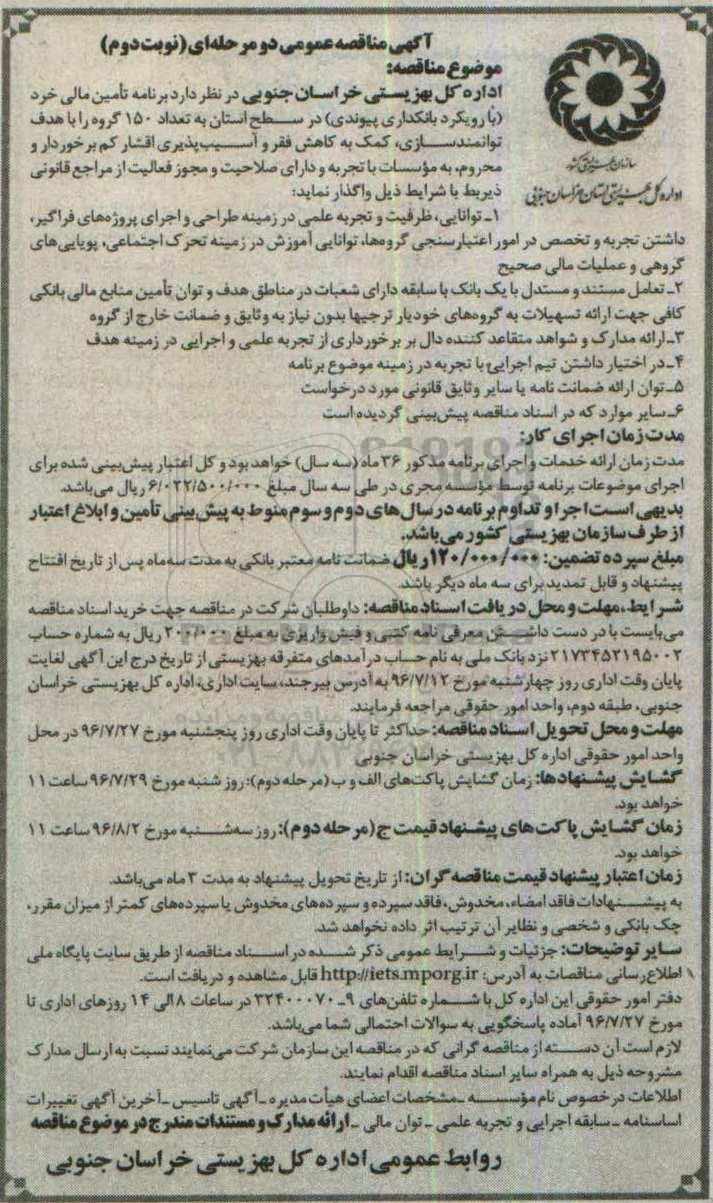 آگهی مناقصه عمومی دو مرحله‌ای (نوبت دوم)
موضوع مناقصه:
اداره کل بهزیستی خراسان جنوبی در نظر دارد برنامه تأمین مالی خرد
(با رویکرد بانکداری پیوندی) در سطح استان به تعداد ۱۵۰ گروه را با هدف
توانمندسازی، کمک به کاهش فقر و آسیب‌پذیری اقشار کم برخوردار و
محروم، به مؤسسات با تجربه و دارای صلاحیت و مجوز فعالیت از مراجع قانونی
ذیربط با شرایط ذیل واگذار نماید:
سازمان بهزیستی کشور
اداره کل بهزیستی استان خراسان جنوبی
۱ـ توانایی، ظرفیت و تجربه علمی در زمینه طراحی و اجرای پروژه‌های فراگیر،
داشتن تجربه و تخصص در امور اعتبارسنجی گروه‌ها، توانایی آموزش در زمینه تحرک اجتماعی، پویایی‌های
گروهی و عملیات مالی صحیح
۲ـ تعامل مستند و مستدل با یک بانک با سابقه دارای شعبات در مناطق هدف و توان تأمین منابع مالی بانکی
کافی جهت ارائه تسهیلات به گروه‌های خودیار ترجیها بدون نیاز به وثایق و ضمانت خارج از گروه
۳ـ ارائه مدارک و شواهد متقاعد کننده دال بر برخورداری از تجربه علمی و اجرایی در زمینه هدف
۴ـ در اختیار داشتن تیم اجرایی با تجربه در زمینه موضوع برنامه
۵ـ توان ارائه ضمانت نامه یا سایر وثایق قانونی مورد درخواست
۶ـ سایر موارد که در اسناد مناقصه پیش‌بینی گردیده است
مدت زمان اجرای کار:
مدت زمان ارائه خدمات و اجرای برنامه مذکور ۳۶ ماه (سه سال) خواهد بود و کل اعتبار پیش‌بینی شده برای
اجرای موضوعات برنامه توسط مؤسسه مجری در طی سه سال مبلغ ۶/۰۲۲/۵۰۰/۰۰۰ ریال می‌باشد.
بدیهی است اجرا و تداوم برنامه در سال‌های دوم و سوم منوط به پیش‌بینی تأمین و ابلاغ اعتبار
از طرف سازمان بهزیستی کشور می‌باشد.
مبلغ سپرده تضمین: ۱۲۰/۰۰۰/۰۰۰ ریال ضمانت نامه معتبر بانکی به مدت سه‌ماه پس از تاریخ افتتاح
پیشنهاد و قابل تمدید برای سه ماه دیگر باشد.
شرایط، مهلت و محل دریافت اسناد مناقصه: داوطلبان شرکت در مناقصه جهت خرید اسناد مناقصه
می‌بایست با در دست داشتن معرفی نامه کتبی و فیش واریزی به مبلغ ۲۰۰/۰۰۰ ریال به شماره حساب
۲۱۷۳۴۵۲۱۹۵۰۰۲ نزد بانک ملی به نام حساب درآمدهای متفرقه بهزیستی از تاریخ درج این آگهی لغایت
پایان وقت اداری روز چهارشنبه مورخ ۹۶/۷/۱۲ به آدرس بیرجند، سایت اداری، اداره کل بهزیستی خراسان
جنوبی، طبقه دوم، واحد امور حقوقی مراجعه فرمایند.
مهلت و محل تحویل اسناد مناقصه: حداکثر تا پایان وقت اداری روز پنجشنبه مورخ ۹۶/۷/۲۷ در محل
واحد امور حقوقی اداره کل بهزیستی خراسان جنوبی
گشایش پیشنهادها: زمان گشایش پاکت‌های الف و ب (مرحله دوم): روز شنبه مورخ ۹۶/۷/۲۹ ساعت ۱۱
خواهد بود.
زمان گشایش پاکت‌های پیشنهاد قیمت ج (مرحله دوم): روز سه‌شنبه مورخ ۹۶/۸/۲ ساعت ۱۱
خواهد بود.
زمان اعتبار پیشنهاد قیمت مناقصه‌گران: از تاریخ تحویل پیشنهاد به مدت ۳ ماه می‌باشد.
به پیشنهادات فاقد امضاء، مخدوش، فاقد سپرده و سپرده‌های مخدوش یا سپرده‌های کمتر از میزان مقرر،
چک بانکی و شخصی و نظایر آن ترتیب اثر داده نخواهد شد.
سایر توضیحات: جزئیات و شرایط عمومی ذکر شده در اسناد مناقصه از طریق سایت پایگاه ملی
اطلاع‌رسانی مناقصات به آدرس: http://iets.mporg.ir قابل مشاهده و دریافت است.
دفتر امور حقوقی این اداره کل با شماره تلفن‌های ۹ـ ۳۲۴۰۰۰۷۰ در ساعات ۸ الی ۱۴ روزهای اداری تا
مورخ ۹۶/۷/۲۷ آماده پاسخگویی به سوالات احتمالی شما می‌باشد.
لازم است آن دسته از مناقصه گرانی که در مناقصه این سازمان شرکت می‌نمایند نسبت به ارسال مدارک
مشروحه ذیل به همراه سایر اسناد مناقصه اقدام نمایند.
اطلاعات درخصوص نام مؤسسه ـ مشخصات اعضای هیأت مدیره ـ آگهی تاسیس ـ آخرین آگهی تغییرات
اساسنامه ـ سابقه اجرایی و تجربه علمی ـ توان مالی ـ ارائه مدارک و مستندات مندرج در موضوع مناقصه
روابط عمومی اداره کل بهزیستی خراسان جنوبی